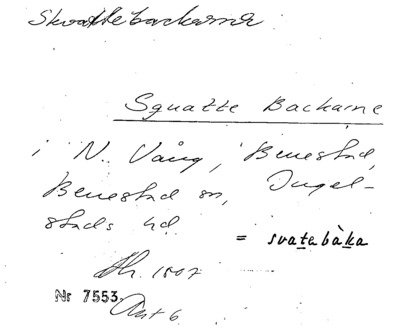 Skvattebackarna
Squatte Backarne
i N. Vång, Benestad,
Benestad sn, Ingel-
stads hd.
= svatebàka
Sk. 1807
Nr 7553.
Akt 6